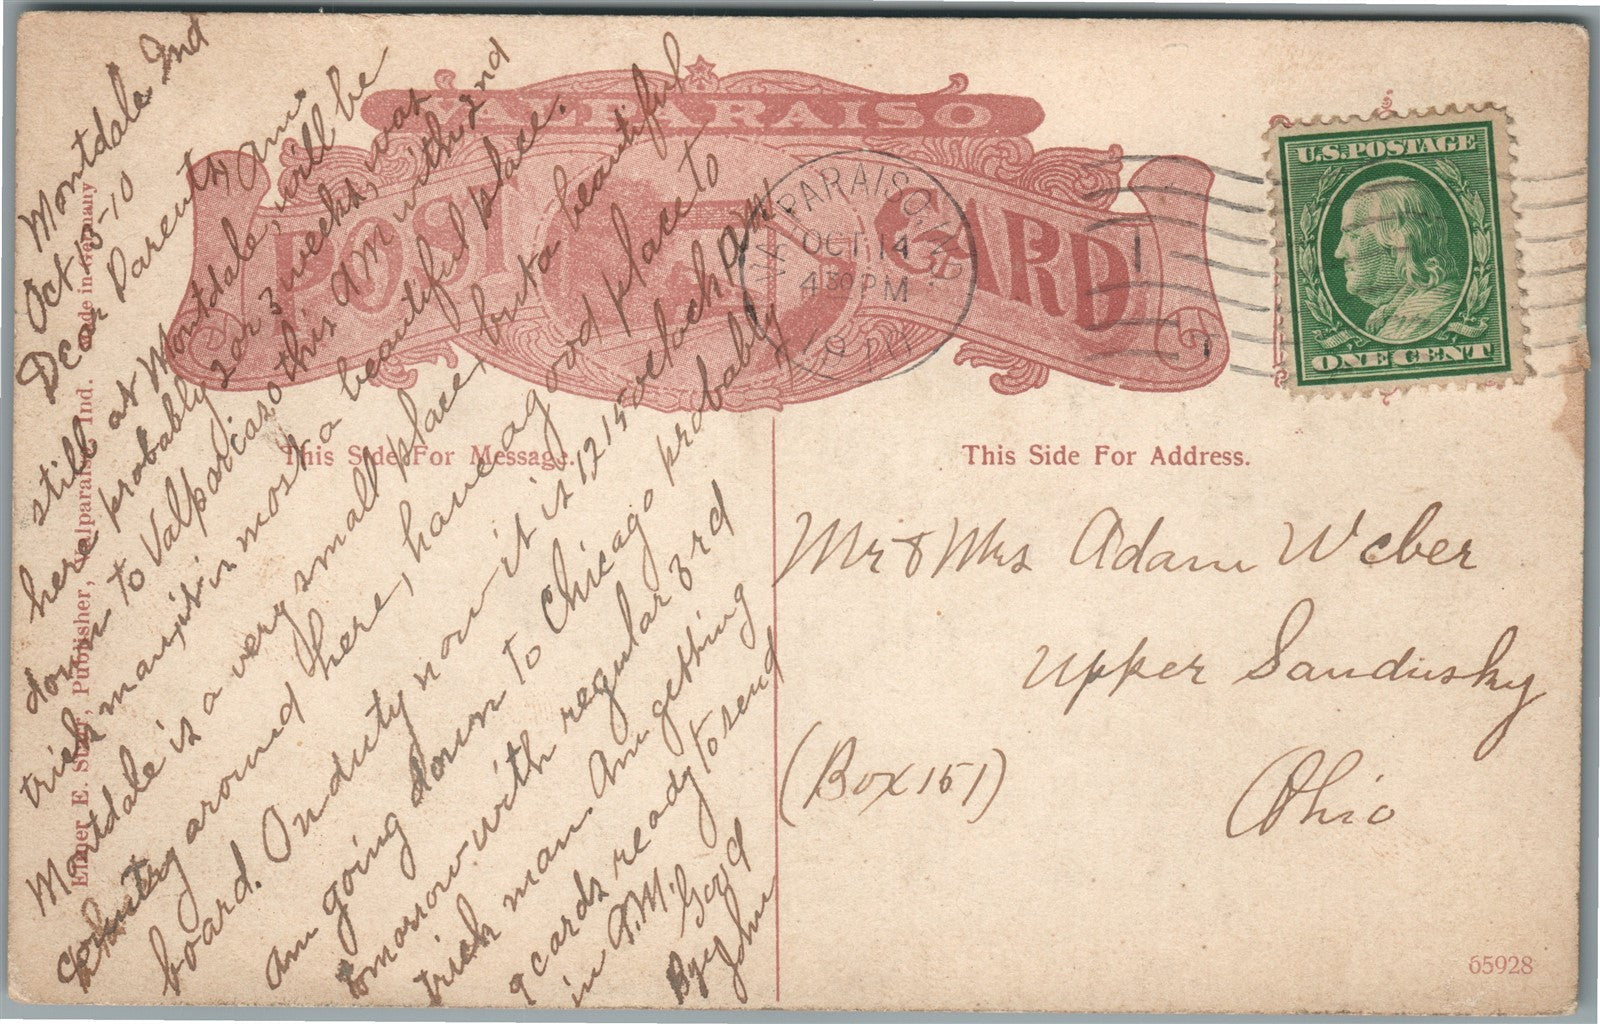 VALPARAISO
POST CARD
VALPARAISO, IND.
OCT 14
4 30 PM
1910
U.S. POSTAGE
ONE CENT
This Side For Message.
This Side For Address.
Elmer E. Starr, Publisher, Valparaiso, Ind. Made in Germany
Montdale Ind
Oct 15-10
Dear Parents Am
still at Montdale, will be
here probably 2 or 3 weeks, was
down to Valparaiso this AM with 2nd
trick man, it is most a beautiful place.
Montdale is a very small place, but a beautiful
country around here, have a good place to
board. On duty now it is 12 15 oclock PM
Am going down to Chicago probably
tomorrow with regular 3rd
trick man. Am getting
9 cards ready to send
in A.M. Good
Bye John
Mr & Mrs Adam Weber
Upper Sandusky
(Box 151) Ohio
65928